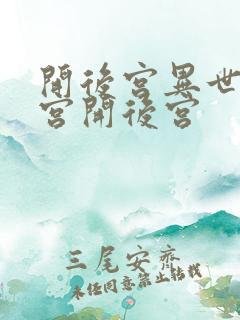 開後宮異世
宮開後宮
三尾安齊
未經同意禁止轉載